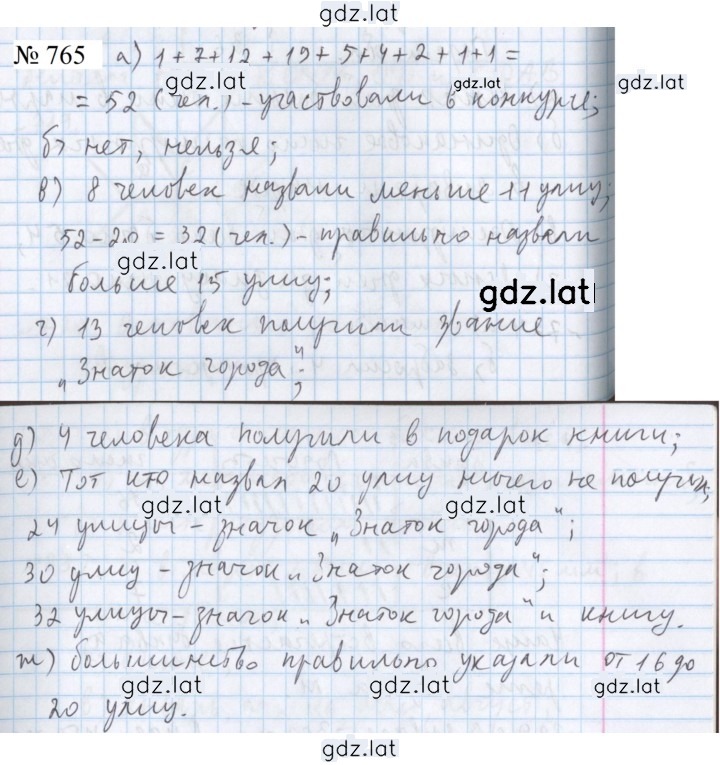 gdz.lat
№ 765 а) 1+7+12+19+5+4+2+1+1=
gdz.lat gdz.lat gdz.lat
= 52 (чел.) - участвовали в конкурсе;
б) нет, нельзя;
в) 8 человек назвали меньше 11 улиц;
52-20 = 32 (чел.) - правильно назвали
gdz.lat
больше 15 улиц;
gdz.lat
г) 13 человек получили звание
„Знаток города";
gdz.lat
д) 4 человека получили в подарок книги;
е) Тот кто назвал 20 улиц ничего не получил;
gdz.lat gdz.lat
24 улицы - значок „Знаток города";
30 улиц - значок „Знаток города";
32 улицы - значок „Знаток города" и книгу.
ж) большинство правильно указали от 16 до
gdz.lat gdz.lat gdz.lat
20 улиц.
gdz.lat